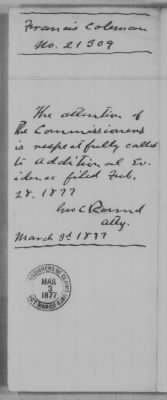 Francis Coleman
No. 21309
The attention of
the Commissioners
is respectfully called
to additional Ev-
idence filed Feb.
28. 1877
Geo C Round
atty.
March 3d 1877
MAR
3
1877